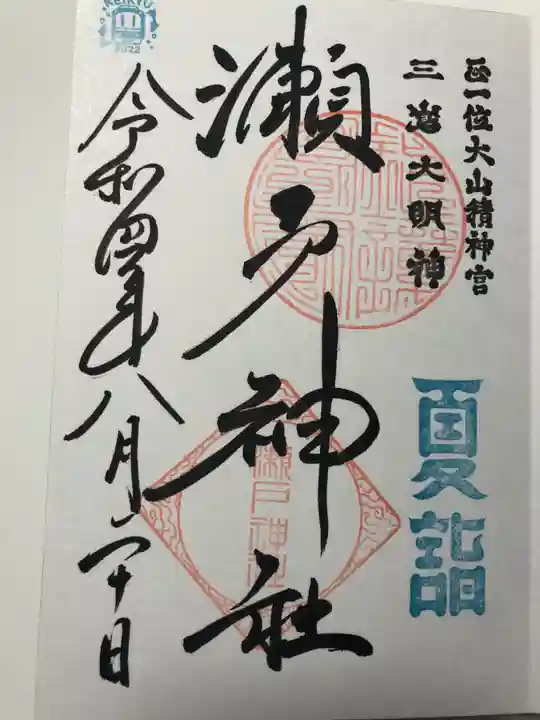 正一位大山積神宮
三島大明神
夏詣
瀬戸神社
瀬戸神社
令和四年八月二十日
KEIKYU
2022